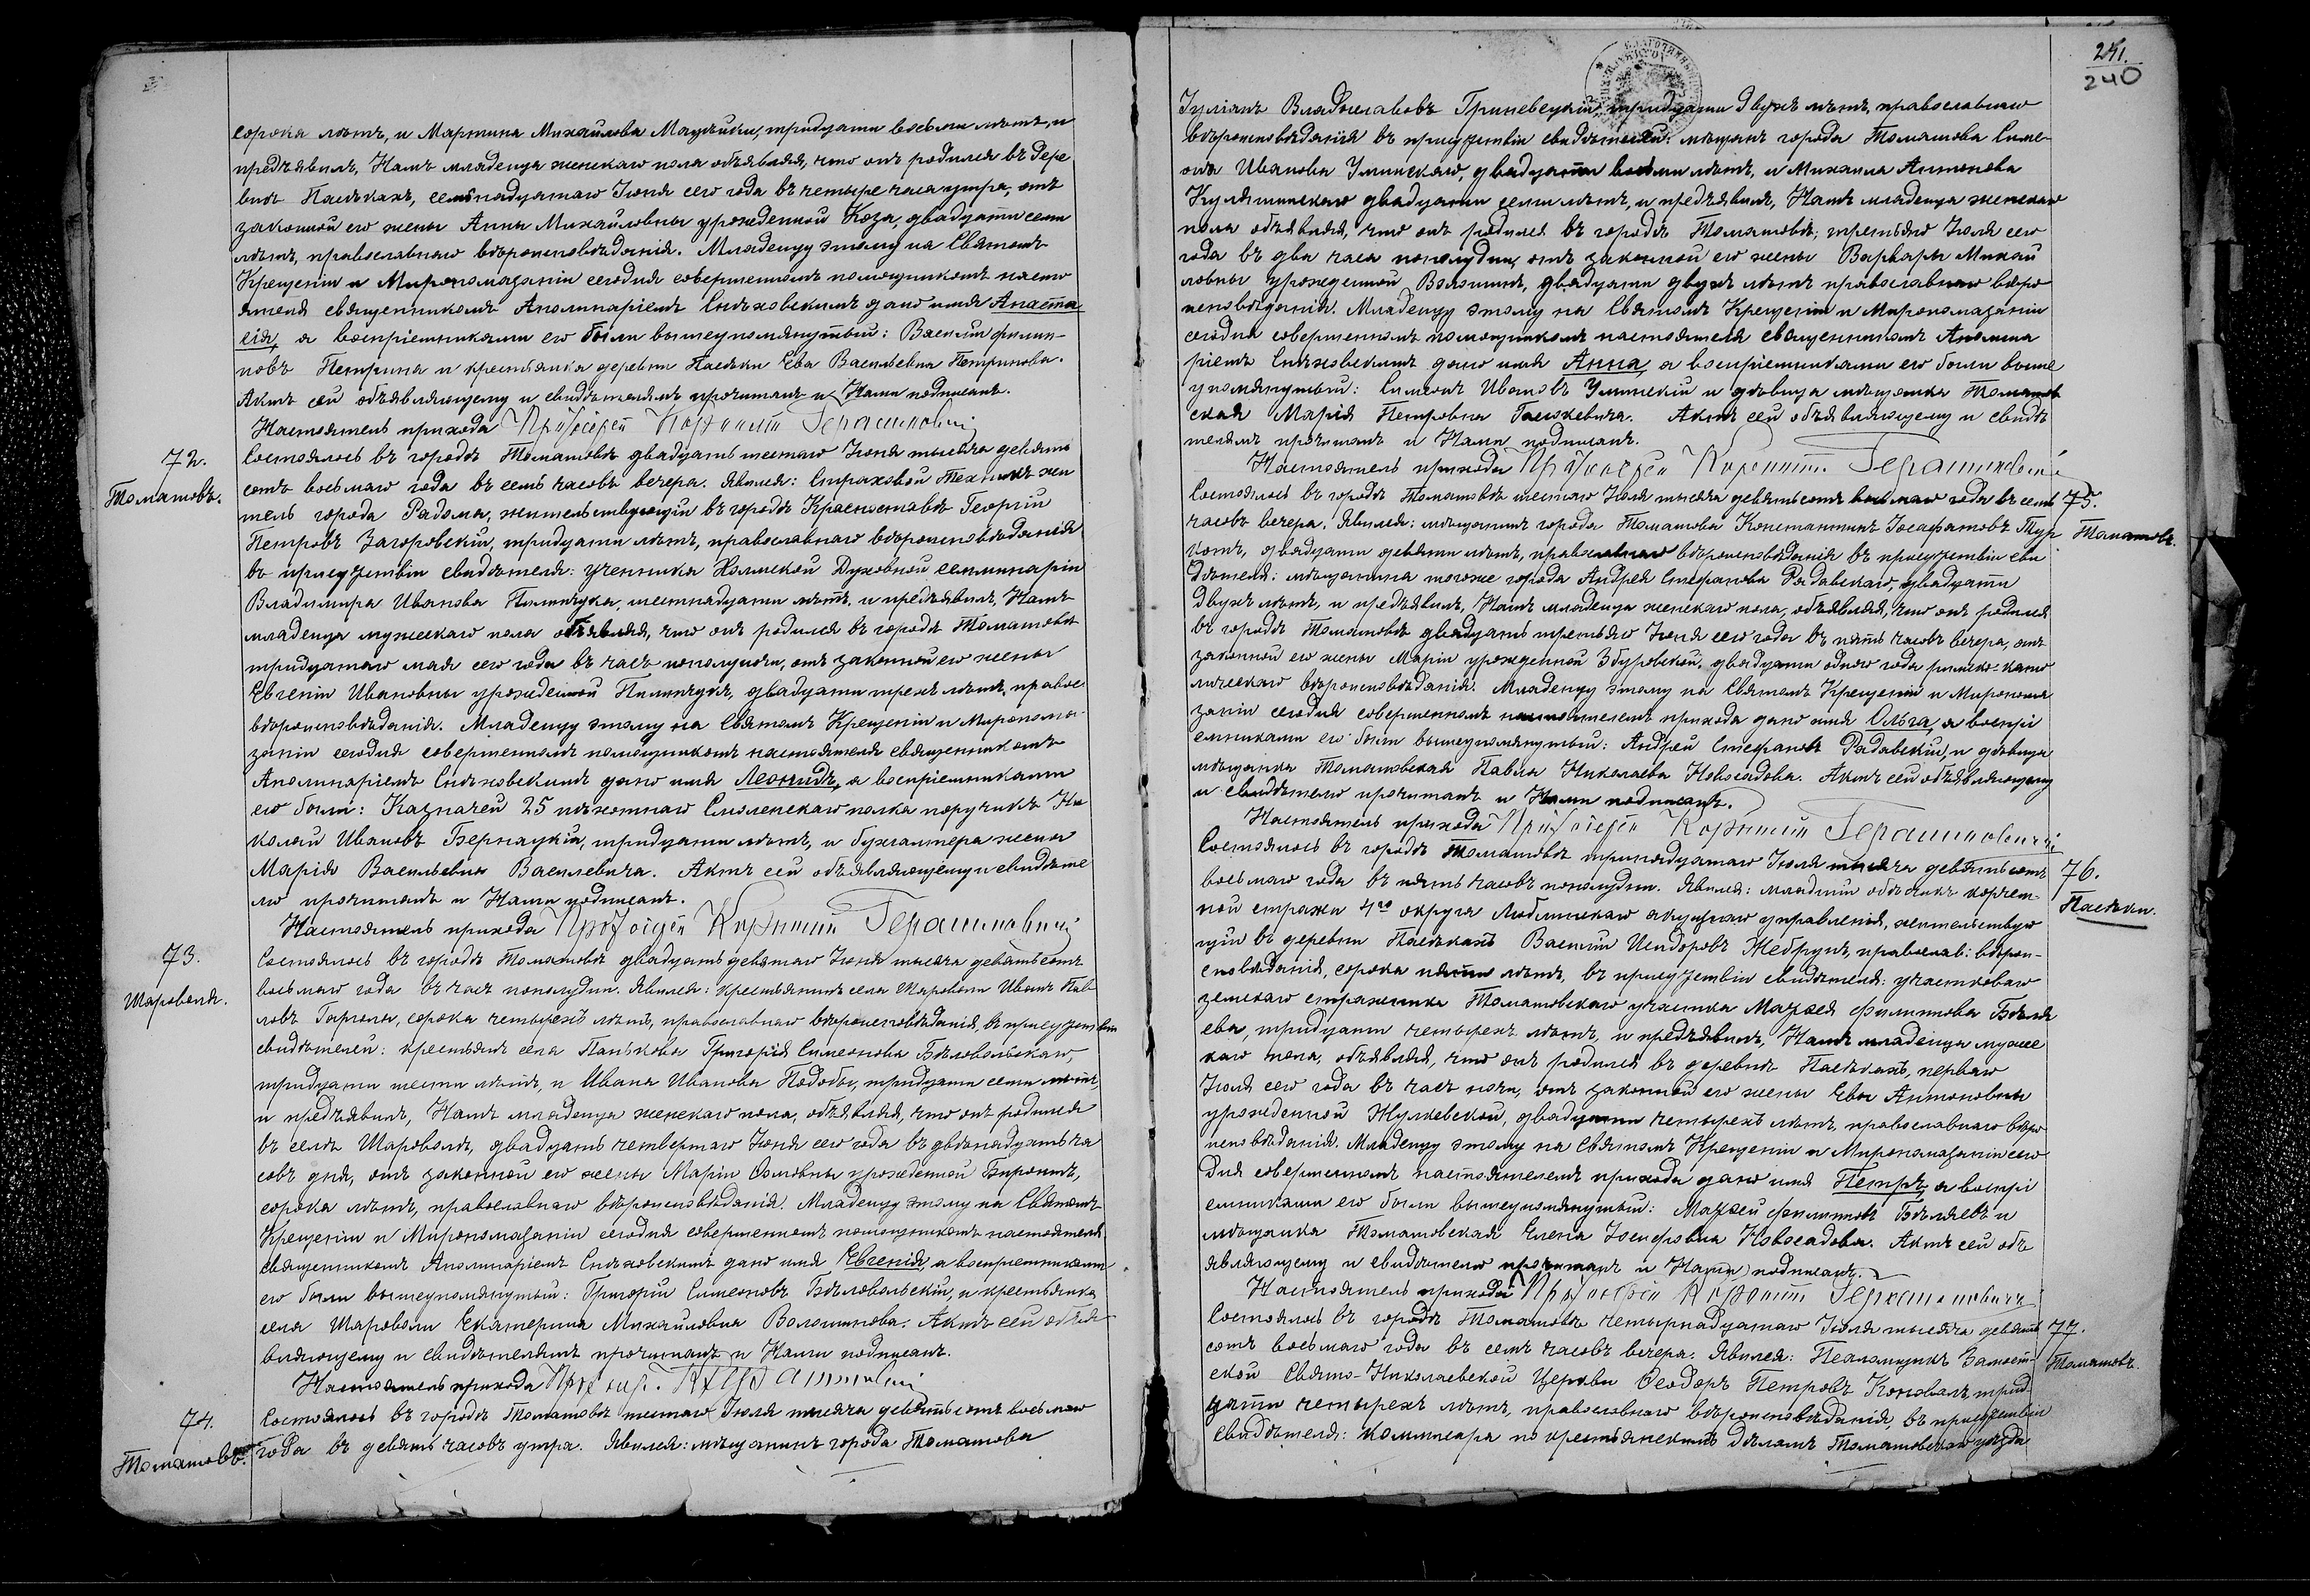 сорока лѣтъ, и Мартина Михайлова Мацѣики, тридцати восьми лѣтъ, и
предъявилъ Намъ младенца женскаго пола объявляя, что онъ родился въ дере
внѣ Пасѣкахъ, семнадцатаго Іюня сего года въ четыре часа утра, отъ
законной его жены Анны Михайловны урожденной Коза, двадцати семи
лѣтъ, православнаго вѣроисповѣданія. Младенцу этому на Святомъ
Крещеніи и Миропомазаніи сегодня совершенномъ помощникомъ насто
ятеля священникомъ Аполинаріемъ Снѣховскимъ дано имя Анаста
сія, а воспріемниками его были вышеупомянутый: Василій Филип-
повъ Петрина и крестьянка деревни Пасѣки Ева Васильевна Петринова.
Актъ сей объявляющему и свидѣтелямъ прочитанъ и Нами подписанъ.
Настоятель прихода Протоіерей Корнилій Герашиновичъ
72.
Томашовъ.
Состоялось въ городѣ Томашовѣ двадцать шестаго Іюня тысяча девять
сотъ восьмаго года въ семь часовъ вечера. Явился: Страховой Техникъ жи
тель города Радома, жительствующій въ городѣ Красноставѣ Георгій
Петровъ Загоровскій, тридцати лѣтъ, православнаго вѣроисповѣданія
въ присутствіи свидѣтеля: ученика Холмской Духовной семинаріи
Владимира Иванова Пилипчука, шестнадцати лѣтъ, и предъявилъ Намъ
младенца мужескаго пола объявляя, что онъ родился въ городѣ Томашовѣ
тридцатаго мая сего года въ часъ пополуночи, отъ законной его жены
Евгеніи Ивановны урожденной Пилипчукъ, двадцати трехъ лѣтъ, правос.
вѣроисповѣданія. Младенцу этому на Святомъ Крещеніи и Миропома-
заніи сегодня совершенномъ помощникомъ настоятеля священникомъ
Аполинаріемъ Снѣховскимъ дано имя Леонидъ, а воспріемниками
его были: Казначей 25 пѣхотнаго Смоленскаго полка поручикъ Ни
колай Ивановъ Бернацкій, тридцати лѣтъ, и бухгалтера жена
Марія Васильевна Василевича. Актъ сей объявляющему и свидѣте
лю прочитанъ и Нами подписанъ.
Настоятель прихода Протоіерей Корнилій Герашиновичъ
73.
Шароволя.
Состоялось въ городѣ Томашовѣ двадцать девятаго Іюня тысяча девятьсотъ
восьмаго года въ часъ пополудни. Явился: крестьянинъ села Шароволи Иванъ Пав
ловъ Гаргола, сорока четырехъ лѣтъ, православнаго вѣроисповѣданія, въ присутствіи
свидѣтелей: крестьянъ села Панькова Григорія Симеонова Бѣловольскаго,
тридцати шести лѣтъ, и Ивана Иванова Подобы, тридцати семи лѣтъ,
и предъявилъ Намъ младенца женскаго пола, объявляя, что онъ родился
въ селѣ Шароволѣ, двадцать четвертаго Іюня сего года въ двѣнадцать ча
совъ дня, отъ законной его жены Маріи Ѳомовны урожденной Биронтъ,
сорока лѣтъ, православнаго вѣроисповѣданія. Младенцу этому на Святомъ
Крещеніи и Миропомазаніи сегодня совершенномъ помощникомъ настоятеля
священникомъ Аполинаріемъ Снѣховскимъ дано имя Евгенія, а воспріемниками
его были вышеупомянутый: Григорій Симеоновъ Бѣловольскій, и крестьянка
села Шароволи Екатерина Михайловна Волошинова. Актъ сей объя
вляющему и свидѣтелямъ прочитанъ и Нами подписанъ.
Настоятель прихода
74.
Томашовъ.
Состоялось въ городѣ Томашовѣ шестаго Іюля тысяча девятьсотъ восьмаго
года въ девять часовъ утра. Явился: мѣщанинъ города Томашова
241.
240
Іуліанъ Владиславовъ Гриневецкій, тридцати двухъ лѣтъ, православнаго
вѣроисповѣданія въ присутствіи свидѣтелей: мѣщанъ города Томашова Симе-
она Иванова Улинскаго, двадцати восьми лѣтъ, и Михаила Антонова
Кулешинскаго двадцати семи лѣтъ, и предъявилъ Намъ младенца женскаго
пола объявляя, что онъ родился въ городѣ Томашовѣ, третьяго Іюля сего
года въ два часа пополудни, отъ законной его жены Варвары Михай
ловны урожденной Волошинъ, двадцати двухъ лѣтъ православнаго вѣро
исповѣданія. Младенцу этому на Святомъ Крещеніи и Миропомазаніи
сегодня совершенномъ помощникомъ настоятеля священникомъ Аполина
ріемъ Снѣховскимъ дано имя Анна, а воспріемниками его были выше
упомянутый: Симеонъ Ивановъ Улинскій и дѣвица мѣщанка Томашов
ская Марія Петровна Гаськевича. Актъ сей объявляющему и свидѣ
телямъ прочитанъ и Нами подписанъ.
Настоятель прихода Протоіерей Корнилій Герашиновичъ
75.
Томашовъ.
Состоялось въ городѣ Томашовѣ шестаго Іюля тысяча девятьсотъ восьмаго года въ семь
часовъ вечера. Явился: мѣщанинъ города Томашова Константинъ Іосафатовъ Тур
котъ, двадцати девяти лѣтъ, православнаго вѣроисповѣданія въ присутствіи сви
дѣтеля: мѣщанина тогоже города Андрея Стефанова Радавскаго, двадцати
двухъ лѣтъ, и предъявилъ Намъ младенца женскаго пола, объявляя, что онъ родился
въ городѣ Томашовѣ двадцать третьяго Іюня сего года въ пять часовъ вечера, отъ
законной его жены Маріи урожденной Збуровской, двадцати одного года римско-като
лическаго вѣроисповѣданія. Младенцу этому на Святомъ Крещеніи и Миропома
заніи сегодня совершенномъ настоятелемъ прихода дано имя Ольга, а воспрі
емниками его были вышеупомянутый: Андрей Стефановъ Радавскій, и дѣвица
мѣщанка Томашовская Павла Николаева Новосадова. Актъ сей объявляющему
и свидѣтелю прочитанъ и Нами подписанъ.
Настоятель прихода Протоіерей Корнилій Герашиновичъ
76.
Пасѣки.
Состоялось въ городѣ Томашовѣ тринадцатаго Іюля тысяча девятьсотъ
восьмаго года въ пять часовъ пополудни. Явился: младшій объѣзчикъ корчем-
ной стражи 4го округа Люблинскаго акцизнаго управленія, жительствую
щій въ деревни Пасѣкахъ Василій Исидоровъ Жебрунъ, православ: вѣрои-
сповѣданія, сорока пяти лѣтъ, въ присутствіи свидѣтеля: участковаго
земскаго стражника Томашовскаго участка Маѳѳея Филиппова Бѣля
ева, тридцати четырехъ лѣтъ, и предъявилъ Намъ младенца мужес
каго пола, объявляя, что онъ родился въ деревнѣ Пасѣкахъ, перваго
Іюля сего года въ часъ ночи, отъ законной его жены Евы Антоновны
урожденной Жулкевской, двадцати четырехъ лѣтъ, православнаго вѣро
исповѣданія. Младенцу этому на Святомъ Крещеніи и Миропомазаніи сего
дня совершенномъ настоятелемъ прихода дано имя Петръ, а воспрі
емниками его были вышеупомянутый: Маѳѳей Филипповъ Бѣляевъ и
мѣщанка Томашовская Елена Іосифовна Новосадова. Актъ сей объ
являющему и свидѣтелю прочитанъ и Нами подписанъ.
Настоятель прихода Протоіерей Корнилій Герашиновичъ
77.
Томашовъ.
Состоялось въ городѣ Томашовѣ четырнадцатаго Іюля тысяча девять
сотъ восьмаго года въ семь часовъ вечера. Явился: Псаломщикъ Замост-
ской Свято-Николаевской Церкви Ѳеодоръ Петровъ Коновалъ, трид
цати четырехъ лѣтъ, православнаго вѣроисповѣданія, въ присутствіи
свидѣтеля: Коммисара по крестьянскимъ дѣламъ Томашовскаго уѣзда